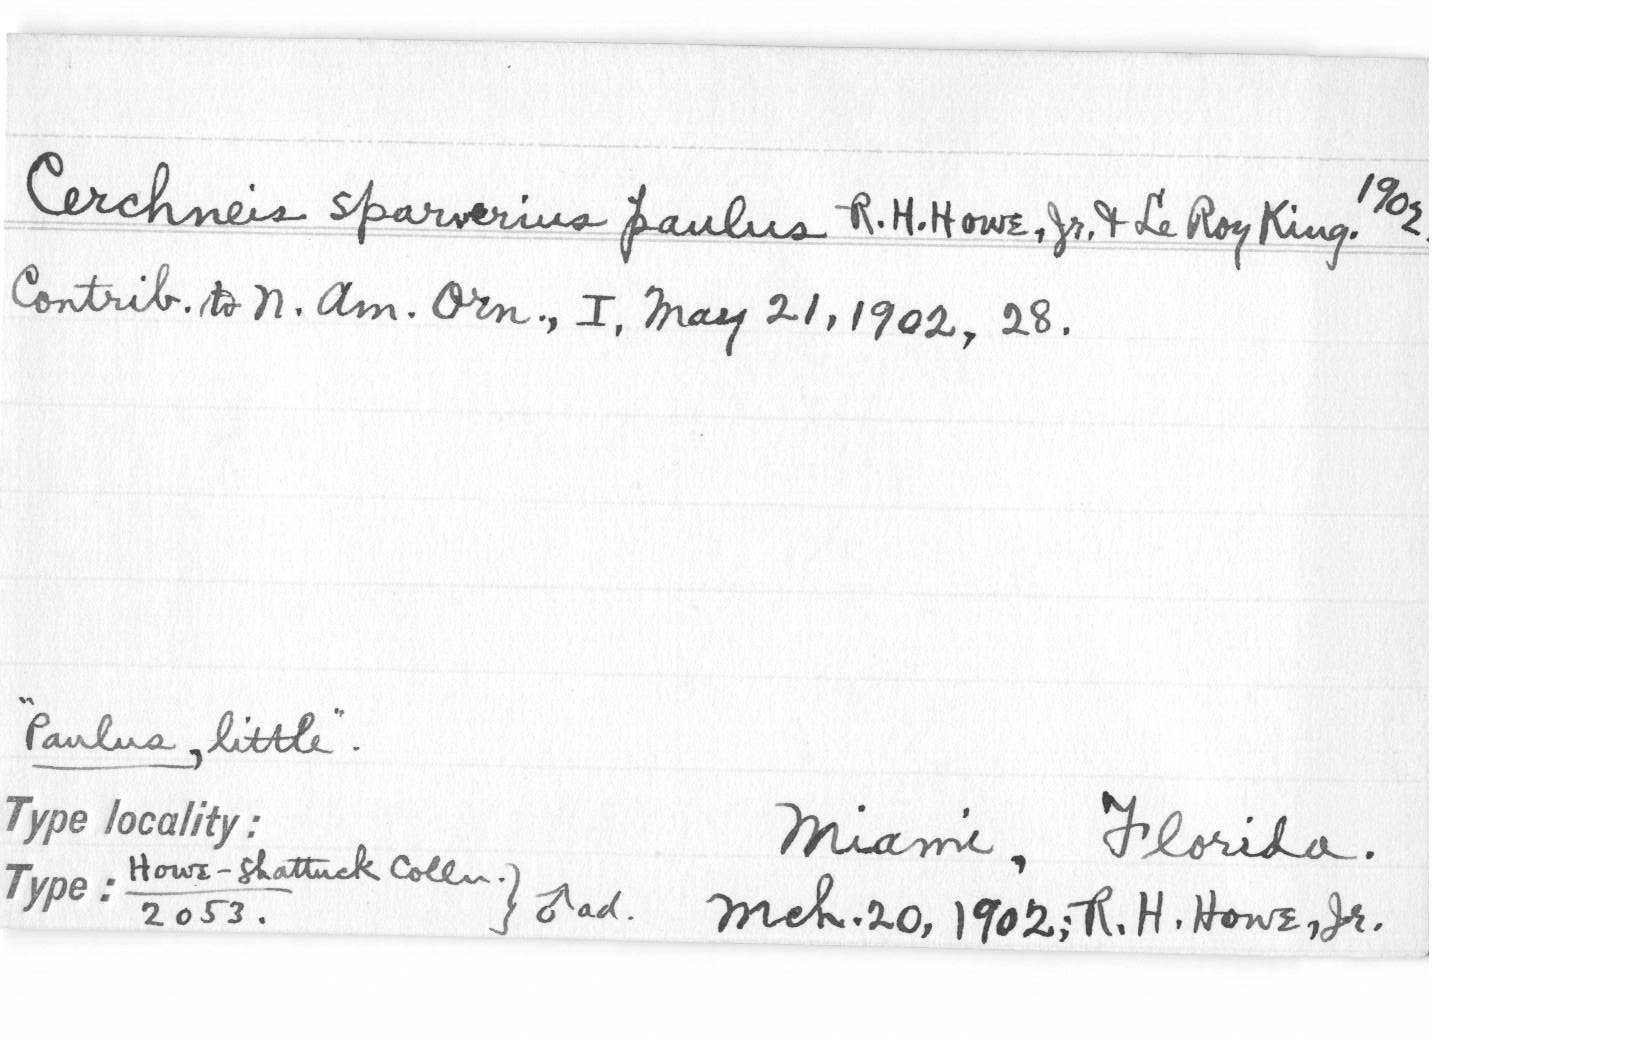 Cerchneis sparverius paulus R.H.Howe, Jr. & Le Roy King. 1902.
Contrib. to N. Am. Orn., I, May 21, 1902, 28.
"Paulus, little".
Type locality: Miami, Florida.
Type: Howe-Shattuck Colln. } ♂ ad. Mch. 20, 1902; R. H. Howe, Jr.
2053.